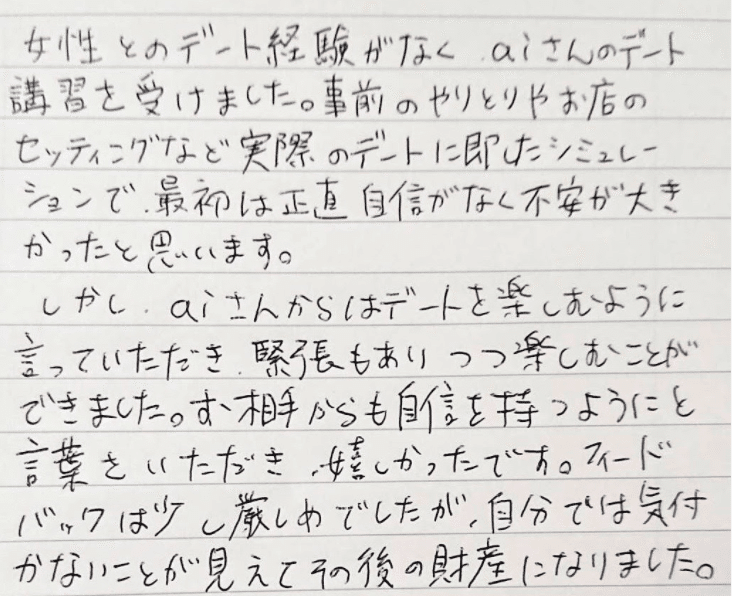 女性とのデート経験がなく、aiさんのデート
講習を受けました。事前のやりとりやお店の
セッティングなど実際のデートに即したシミュレー
ションで、最初は正直自信がなく不安が大き
かったと思います。
しかし、aiさんからはデートを楽しむように
言っていただき、緊張もありつつ楽しむことが
できました。お相手からも自信を持つようにと
言葉をいただき、嬉しかったです。フィード
バックは少し厳しめでしたが、自分では気付
かないことが見えてその後の財産になりました。